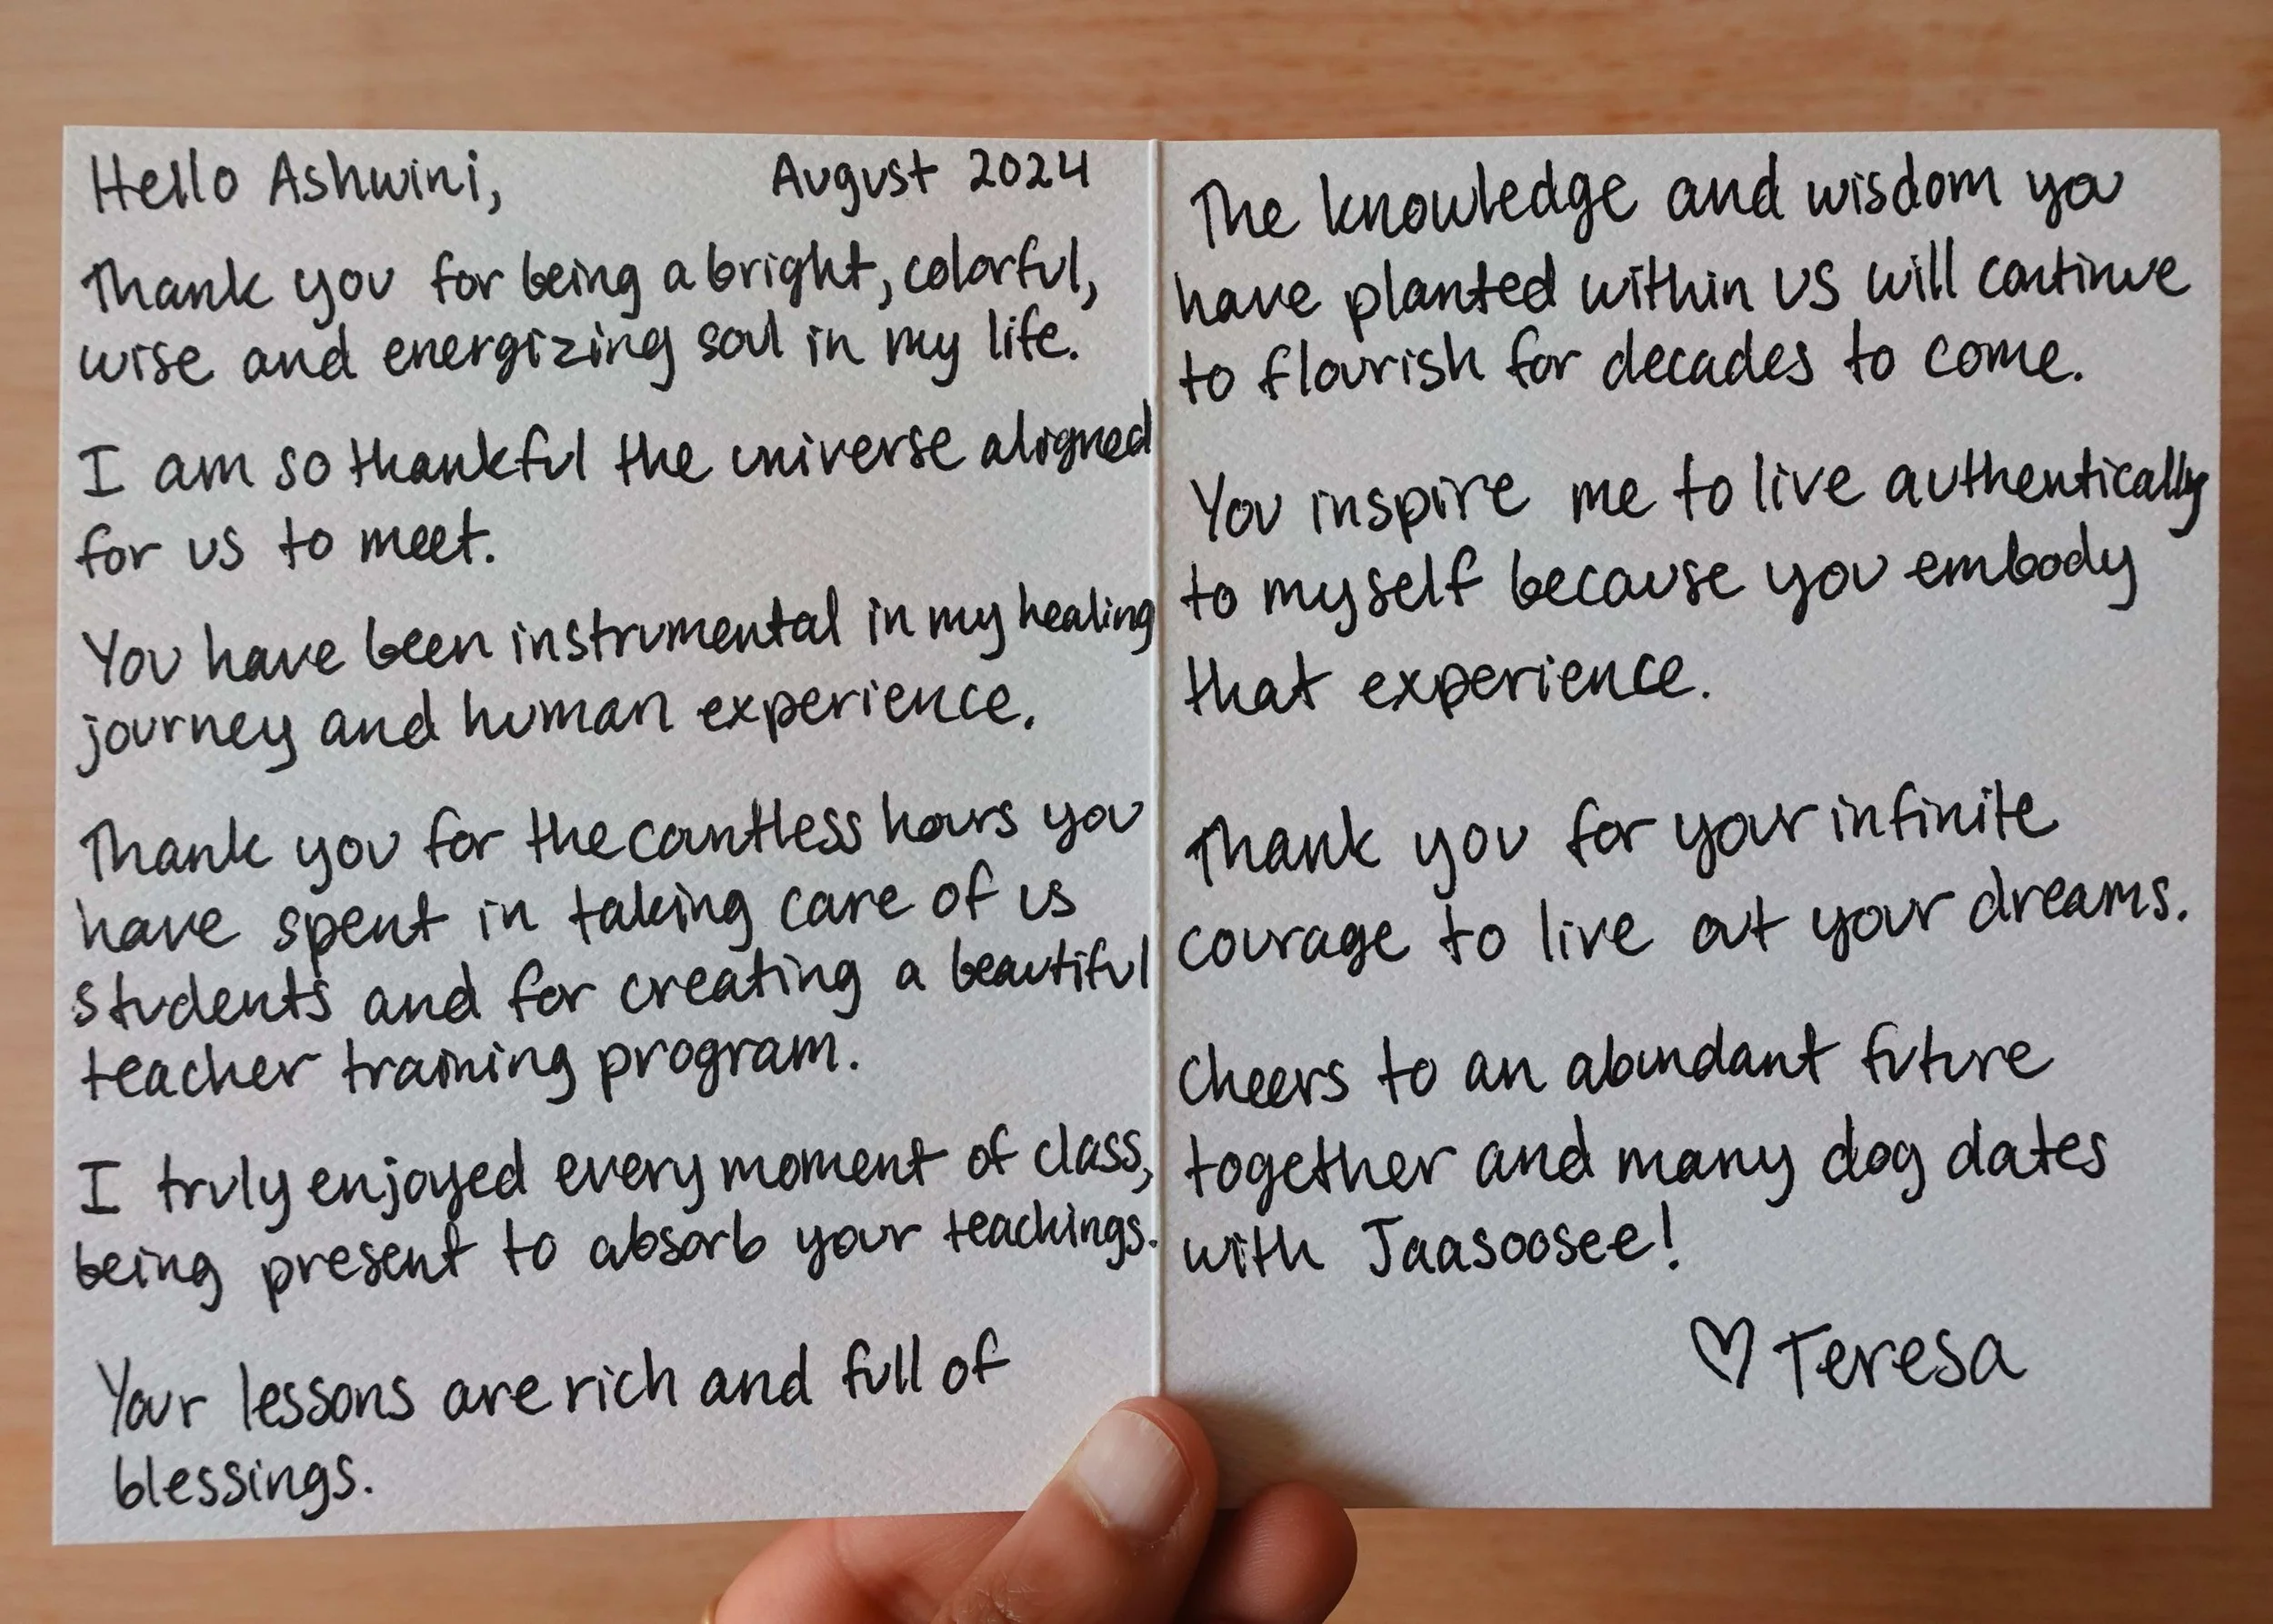 Hello Ashwini, August 2024
Thank you for being a bright, colorful,
wise and energizing soul in my life.
I am so thankful the universe aligned
for us to meet.
You have been instrumental in my healing
journey and human experience.
Thank you for the countless hours you
have spent in taking care of us
students and for creating a beautiful
teacher training program.
I truly enjoyed every moment of class,
being present to absorb your teachings.
Your lessons are rich and full of
blessings.
The knowledge and wisdom you
have planted within us will continue
to flourish for decades to come.
You inspire me to live authentically
to myself because you embody
that experience.
Thank you for your infinite
courage to live out your dreams.
Cheers to an abundant future
together and many dog dates
with Jaasoosee!
♡ Teresa